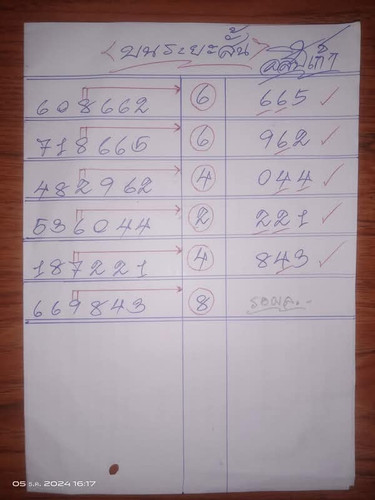 บนระยะสั้น
608662 6 665
718665 6 962
482962 4 044
536044 2 221
187221 4 843
669843 8 รอผล.-
05 ธ.ค. 2024 16:17